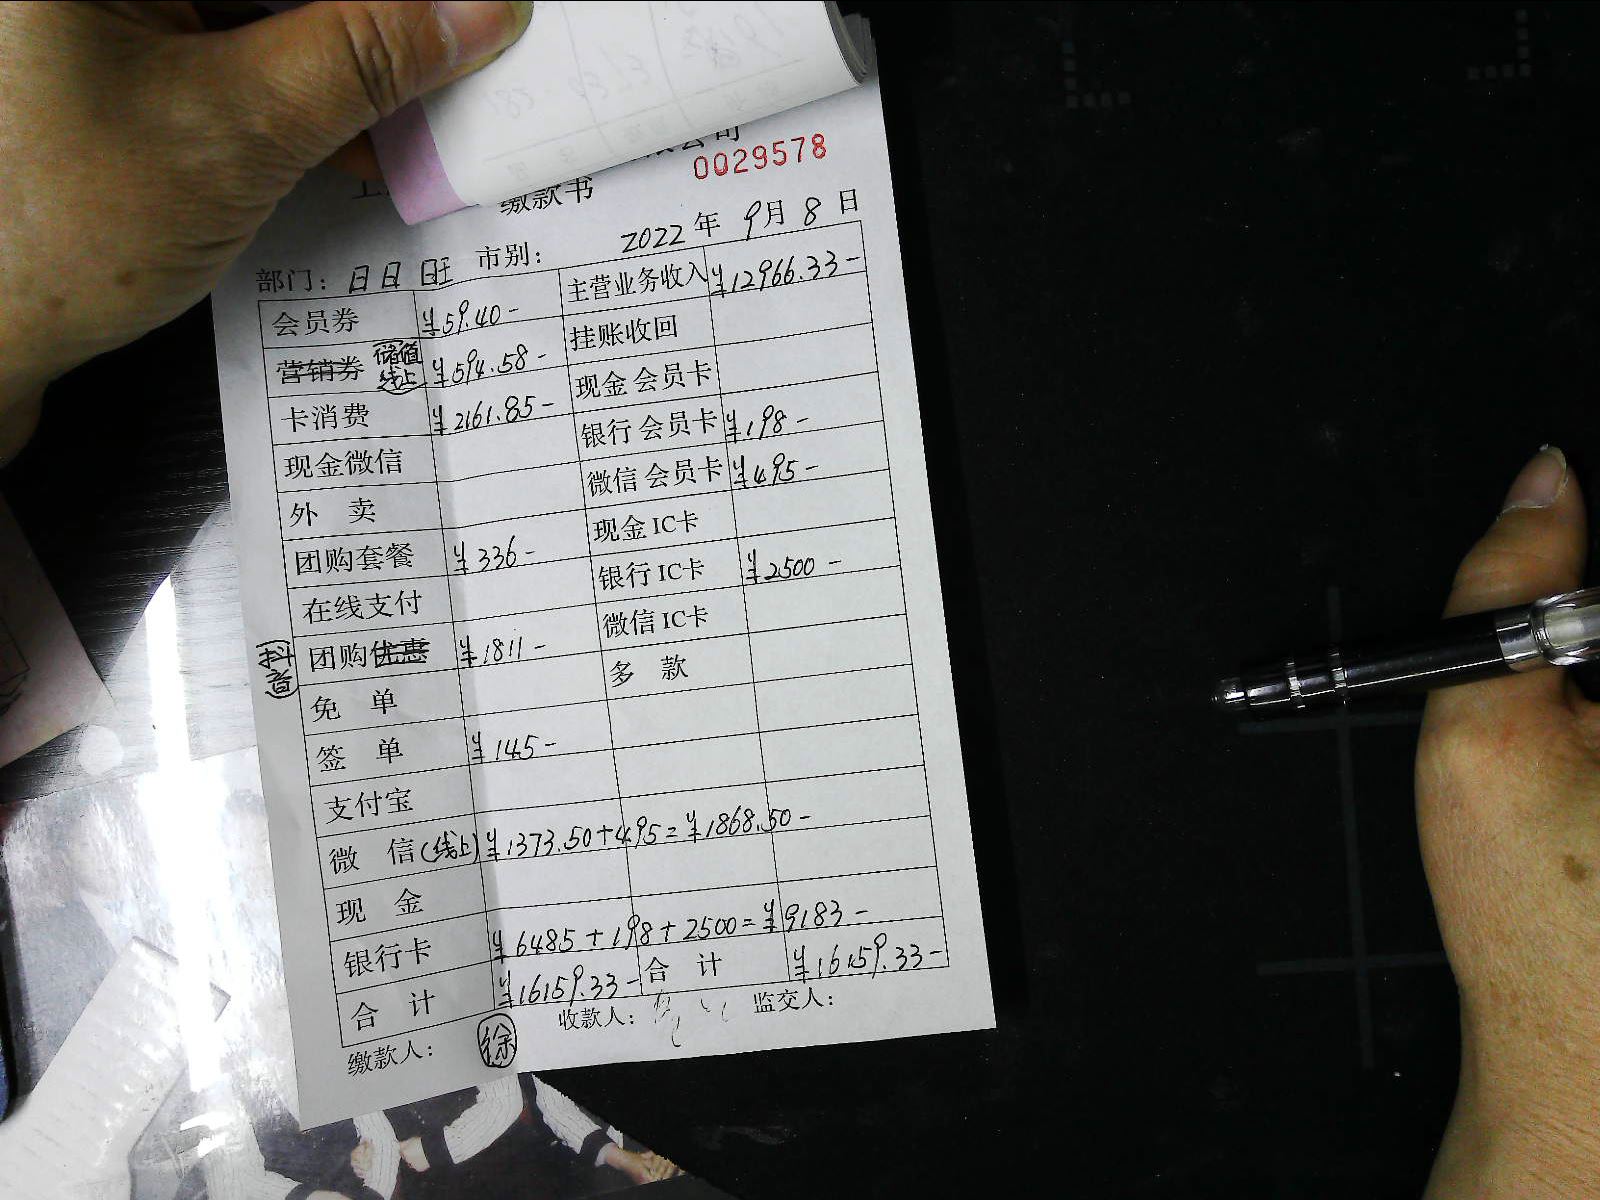 限公司
0029578
缴款书
2022年 9月 8日
部门: 日日旺 市别:
会员券 ¥59.40- 主营业务收入 ¥12966.33-
营销券 储值线上 ¥594.58- 挂账收回
卡消费 ¥2161.85- 现金会员卡
现金微信 银行会员卡 ¥198-
外 卖 微信会员卡 ¥495-
团购套餐 ¥336- 现金IC卡
在线支付 银行IC卡 ¥2500-
抖音 团购优惠 ¥1811- 微信IC卡
免 单 多 款
签 单 ¥145-
支付宝
微 信(线上) ¥1373.50+495=¥1868.50-
现 金
银行卡 ¥6485+198+2500=¥9183-
合 计 ¥16159.33- 合 计 ¥16159.33-
缴款人: 徐 收款人: 监交人: